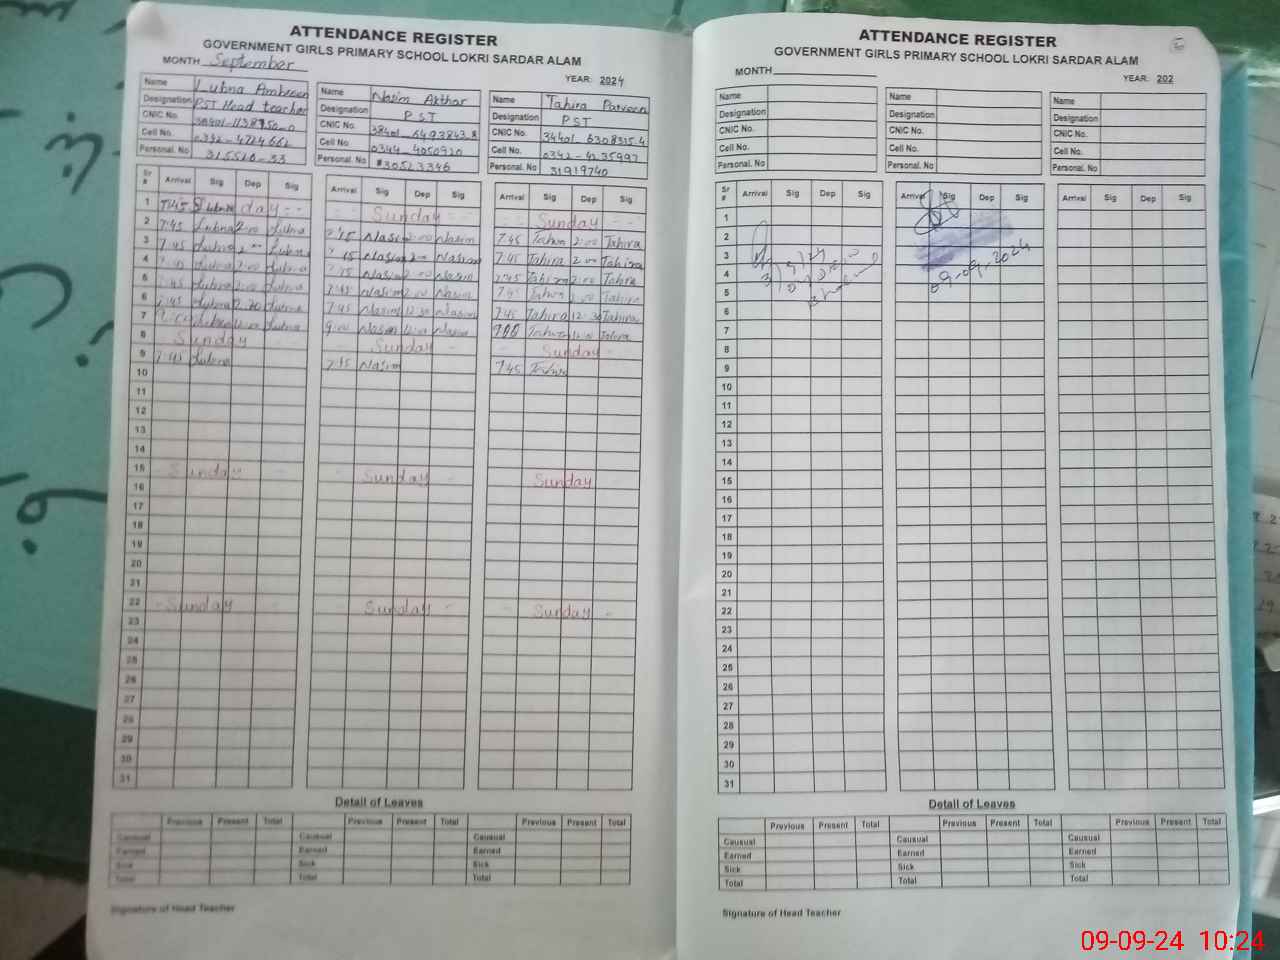 ATTENDANCE REGISTER
GOVERNMENT GIRLS PRIMARY SCHOOL LOKRI SARDAR ALAM
MONTH September
YEAR: 2024
Name Lubna Ambreen
Designation PST Head teacher
CNIC No.
Cell No.
Personal. No
Name Nasim Akthar
Designation PST
CNIC No.
Cell No. 0344-4050920
Personal. No 30523346
Name Tahira Parveen
Designation PST
CNIC No. 34401-6308315.4
Cell No. 0342-4235997
Personal. No 31919740
Sr # Arrival Sig Dep Sig Arrival Sig Dep Sig Arrival Sig Dep Sig
1 Sunday Sunday
2 7:45 Lubna 2:00 Lubna Nasim 2:00 Nasim 7:45 Tahira 2:00 Tahira
3 7:45 Lubna Lubna Nasim Nasim 7:45 Tahira 2:00 Tahira
4 Lubna 2:00 Lubna Nasim 2:00 Nasim 7:45 Tahira 2:00 Tahira
5 7:45 Lubna 2:00 Lubna 7:45 Nasim 2:00 Nasim 7:45 Tahira 2:00 Tahira
6 7:45 Lubna Lubna 7:45 Nasim 12:30 Nasim 7:45 Tahira 12:30 Tahira
7 Lubna Lubna 9:00 Nasim Nasim Tahira Tahira
8 Sunday Sunday Sunday
9 7:45 Lubna 7:45 Nasim 7:45 Tahira
10
11
12
13
14
15 Sunday Sunday Sunday
16
17
18
19
20
21
22 Sunday Sunday Sunday
23
24
25
26
27
28
29
30
31
Detail of Leaves
Previous Present Total Previous Present Total Previous Present Total
Causual Causual Causual
Earned Earned Earned
Sick Sick Sick
Total Total Total
Signature of Head Teacher
ATTENDANCE REGISTER
GOVERNMENT GIRLS PRIMARY SCHOOL LOKRI SARDAR ALAM
MONTH
YEAR: 202
Name Name Name
Designation Designation Designation
CNIC No. CNIC No. CNIC No.
Cell No. Cell No. Cell No.
Personal. No Personal. No Personal. No
Sr # Arrival Sig Dep Sig Arrival Sig Dep Sig Arrival Sig Dep Sig
1
2
3
4 09-09-2024
5
6
7
8
9
10
11
12
13
14
15
16
17
18
19
20
21
22
23
24
25
26
27
28
29
30
31
Detail of Leaves
Previous Present Total Previous Present Total Previous Present Total
Causual Causual Causual
Earned Earned Earned
Sick Sick Sick
Total Total Total
Signature of Head Teacher
09-09-24 10:24